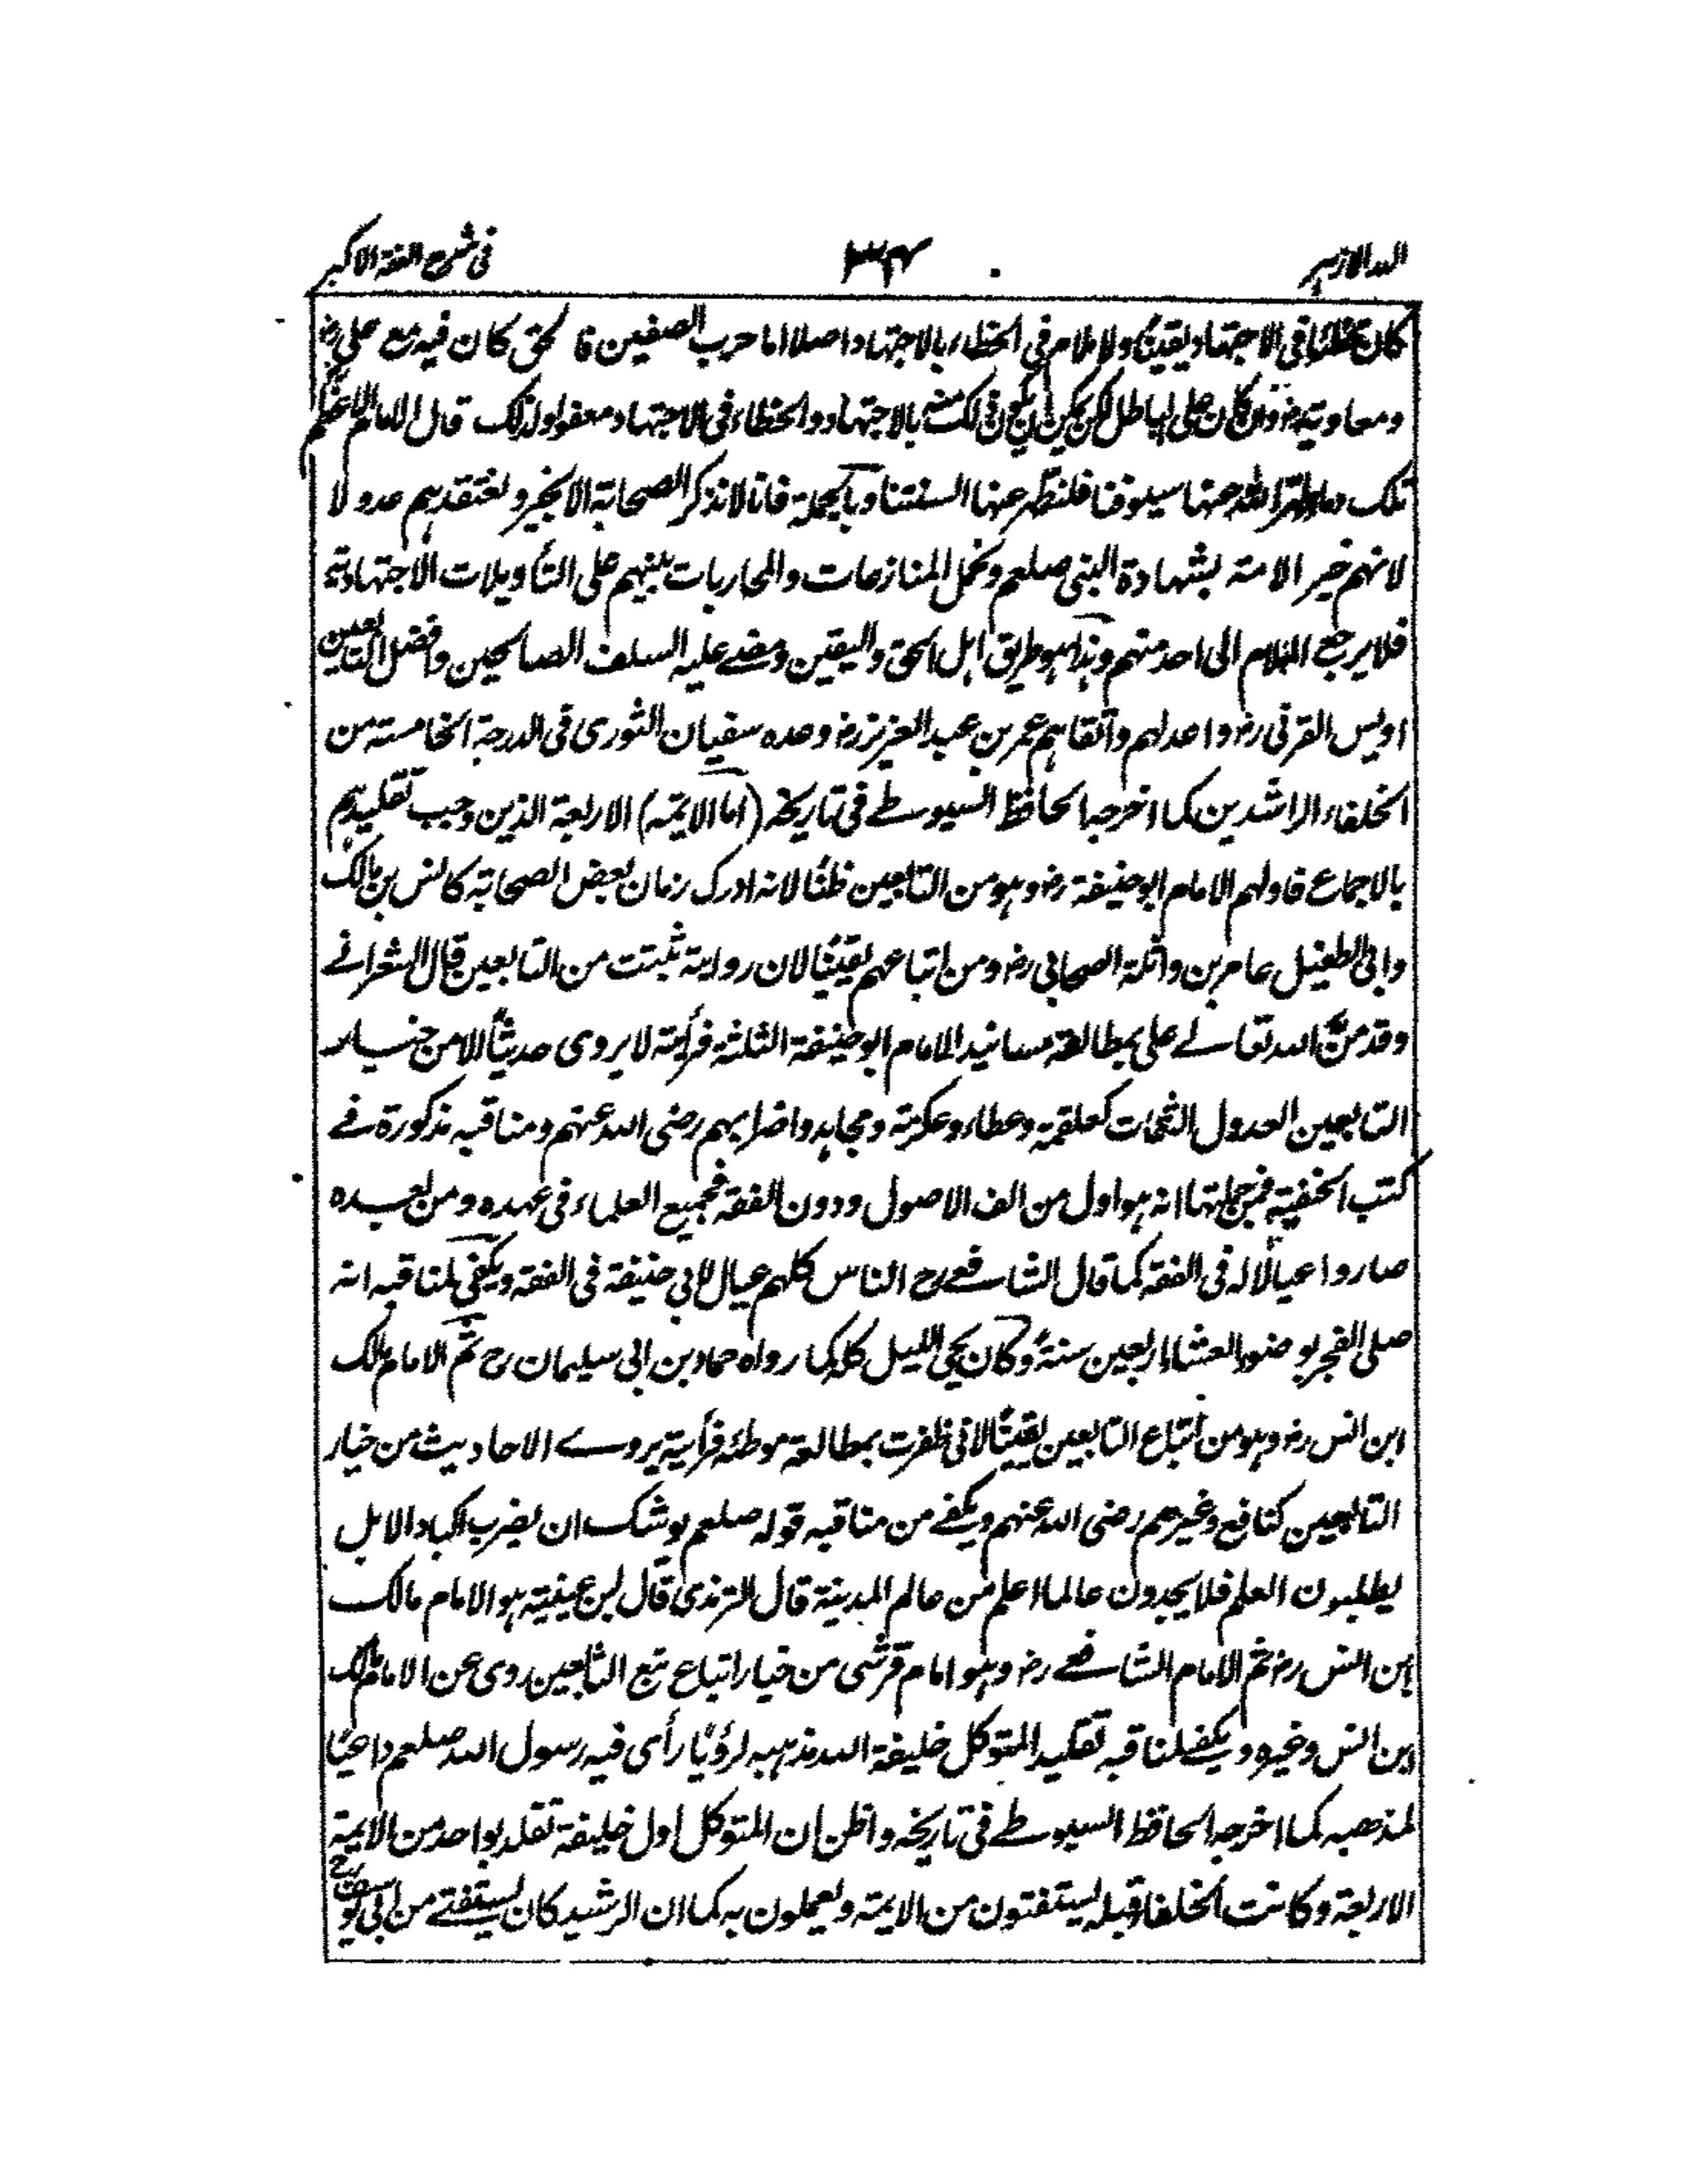 الدر الازهر ٣٤ فى شرح الفقه الاكبر
كان مخطئا فى الاجتهاد يقينًا ولا ملام فى الخطاء بالاجتهاد اصلا اما حرب الصفين فالحق كان فيه مع على رض
ومعاوية رض وان كان على الباطل لكن يمكن ان يكون ذلك منه بالاجتهاد والخطاء فى الاجتهاد معفو ولذلك قال الامام الاعظم
تلك دماء طهر الله عنها سيوفنا فلنطهر عنها السنتنا وبالجملة فانا لا نذكر الصحابة الا بخير ونعتقدهم عدولا
لانهم خير الامة بشهادة النبى صلعم ونحمل المنازعات والمحاربات بينهم على التأويلات الاجتهادية
فلا يرجع الملام الى احد منهم وهذا هو طريق اهل الحق واليقين ومضے عليه السلف الصالحين وافضل التابعين
اويس القرنى رض واعدلهم واتقاهم عمر بن عبد العزيز رض وعده سفيان الثورى فى الدرجة الخامسة من
الخلفاء الراشدين كما اخرجه الحافظ السيوطے فى تاريخه (اما الايمة) الاربعة الذين وجب تقليدهم
بالاجماع فاولهم الامام ابو حنيفة رض وهو من التابعين ظنًا لانه ادرك زمان بعض الصحابة كانس بن مالك
وابى الطفيل عامر بن واثلة الصحابى رض ومن اتباعهم يقينًا لان رواية ثبتت من التابعين قال الشعرانے
وقد منّ الله تعالے على بمطالعة مسانيد الامام ابو حنيفة الثلثة فرأيته لا يروى حديثًا الا من خيار
التابعين العدول الثقات كعلقمة وعطاء وعكرمة ومجاهد واضرابهم رضى الله عنهم ومناقبه مذكورة فے
كتب الحنفية فمن جملتها انه هو اول من الف الاصول ودون الفقه فجميع العلماء فى عهده ومن بعده
صاروا عيالًا له فى الفقه كما قال الشافعے رح الناس كلهم عيال لابى حنيفة فى الفقه ويكفى لمناقبه انه
صلى الفجر بوضوء العشاء اربعين سنةً وكان يحيى الليل كله كما رواه حماد بن ابى سليمان رح ثم الامام مالك
ابن انس رض وهو من اتباع التابعين يقينًا لانى ظفرت بمطالعة موطئه فرأيته يروے الاحاديث من خيار
التابعين كنافع وغيرهم رضى الله عنهم ويكفے من مناقبه قوله صلعم يوشك ان يضرب اكباد الابل
يطلبون العلم فلا يجدون عالما اعلم من عالم المدينة قال الترمذى قال ابن عيينة هو الامام مالك
ابن انس رض ثم الامام الشافعے رض وهو امام قرشى من خيار اتباع تبع التابعين روى عن الامام مالك
ابن انس وغيره ويكفے لمناقبه تقليد المتوكل خليفة الله مذهبه لرؤيًا رأى فيه رسول الله صلعم داعيًا
لمذهبه كما اخرجه الحافظ السيوطے فى تاريخه واظن ان المتوكل اول خليفة تقلد بواحد من الايمة
الاربعة وكانت الخلفاء قبله يستفتون من الايمة ويعملون به كما ان الرشيد كان يستفتے من ابى يوسف رح